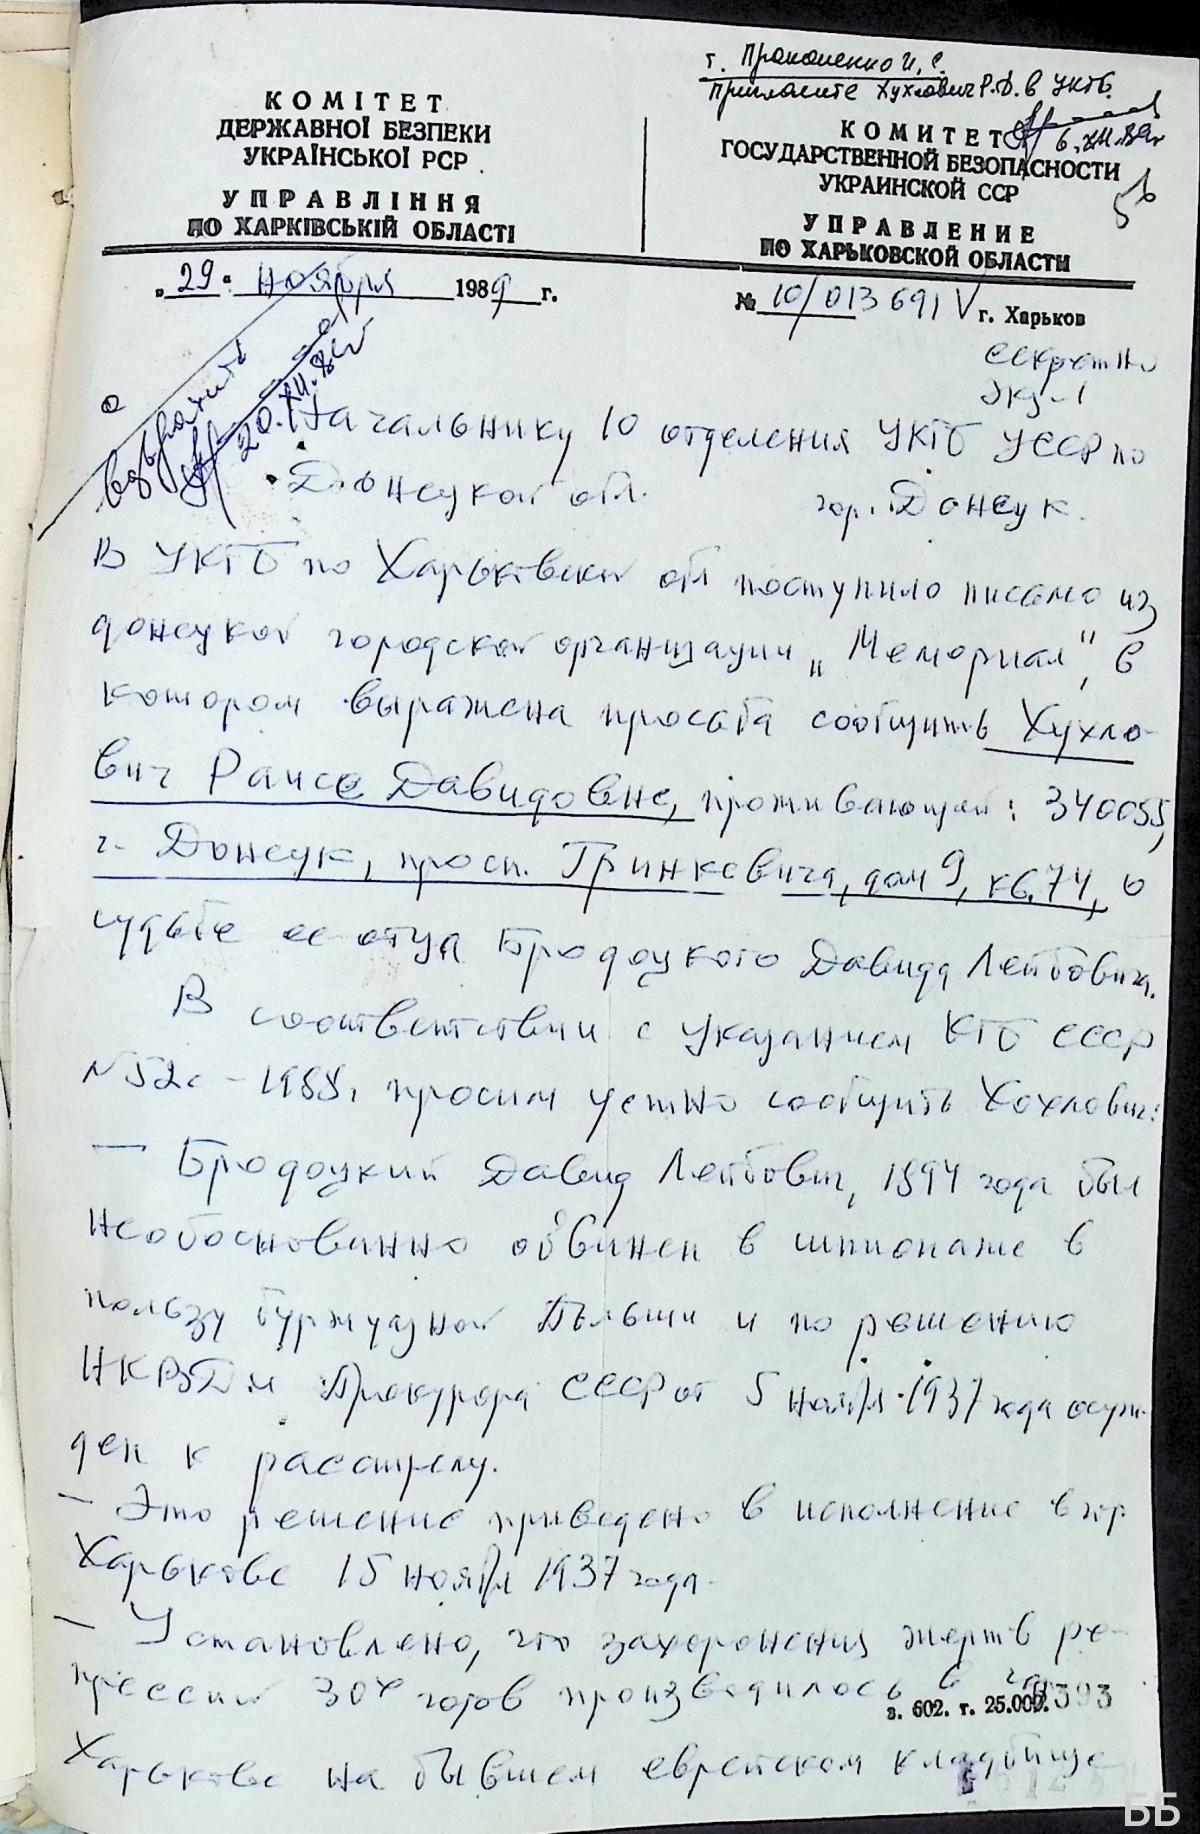 т. Прокопенко И. С.
Пригласите Хухлович Р.Д. в УКГБ.
6.XII.89г
КОМІТЕТ
ДЕРЖАВНОЇ БЕЗПЕКИ
УКРАЇНСЬКОЇ РСР
УПРАВЛІННЯ
ПО ХАРКІВСЬКІЙ ОБЛАСТІ
КОМИТЕТ
ГОСУДАРСТВЕННОЙ БЕЗОПАСНОСТИ
УКРАИНСКОЙ ССР
УПРАВЛЕНИЕ
ПО ХАРЬКОВСКОЙ ОБЛАСТИ
„29“ ноября 1989 г.
№ 10/013691 г. Харьков
возвратить
20.XII.89г
секретно
Экз-1
Начальнику 10 отделения УКГБ УССР по
Донецкой обл. гор. Донецк.
В УКГБ по Харьковской обл поступило письмо из
донецкой городской организации „Мемориал", в
котором выражена просьба сообщить Хухло-
вич Раисе Давидовне, проживающей: 340055,
г. Донецк, просп. Гринкевича, дом 9, кв. 74, о
судьбе ее отца Бродоцкого Давида Лейбовича.
В соответствии с указанием КГБ СССР
№52с-1988г. просим устно сообщить Хохлович:
— Бродоцкий Давид Лейбович, 1894 года был
необоснованно обвинен в шпионаже в
пользу буржуазной Польши и по решению
НКВД и Прокурора СССР от 5 ноября 1937 года осуж-
ден к расстрелу.
— Это решение приведено в исполнение в гор
Харькове 15 ноября 1937 года.
— Установлено, что захоронения жертв ре-
прессий 30х годов производилось в гор
з. 602. т. 25.000.
Харькове на бывшем еврейском кладбище
ББ